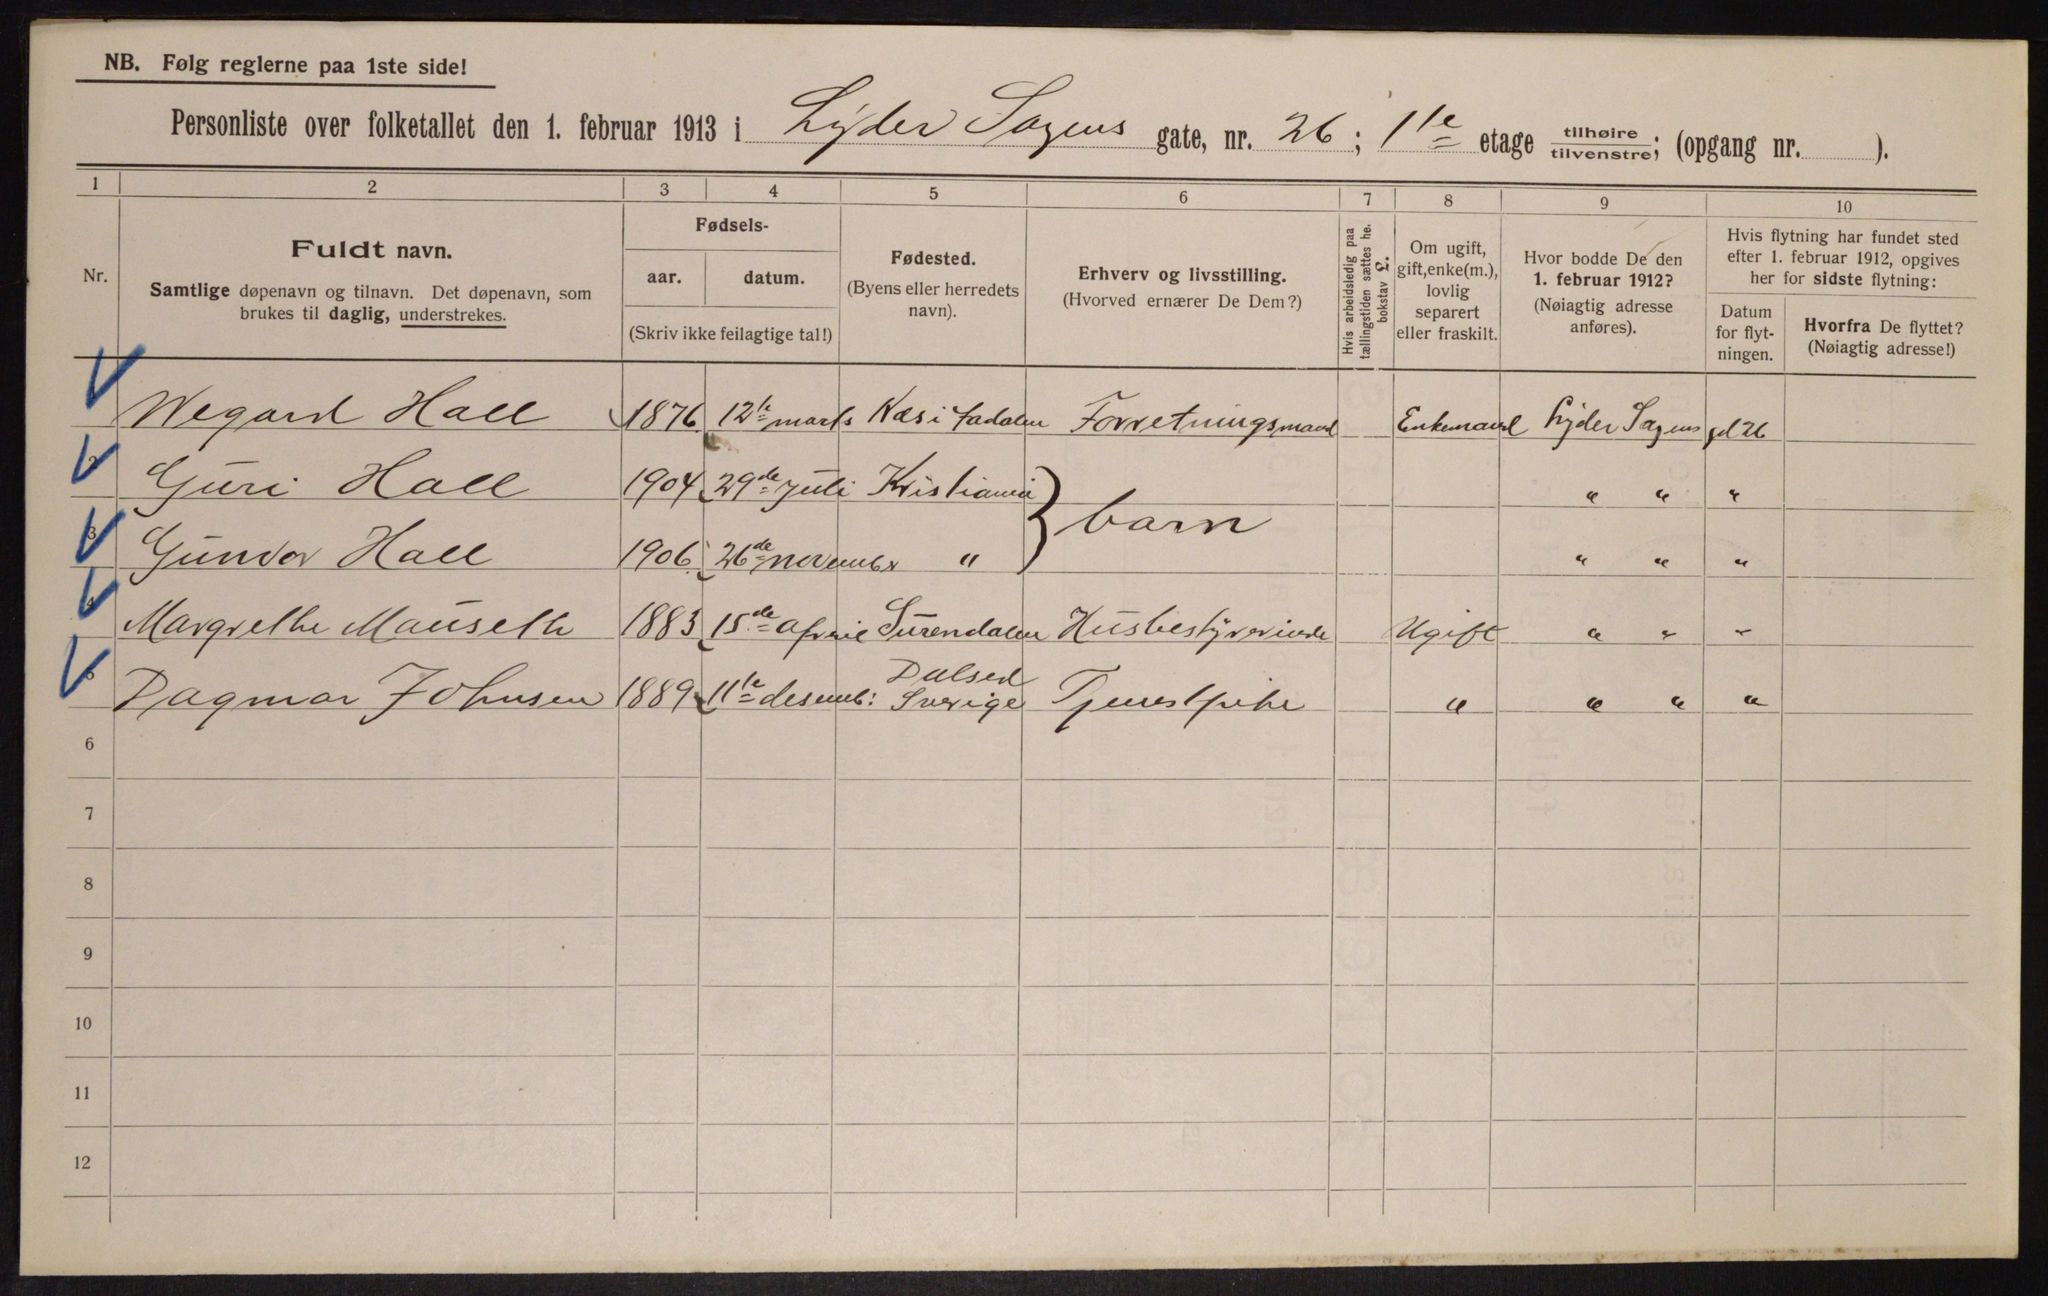 NB. Følg reglerne paa 1ste side!
Personliste over folketallet den 1. februar 1913 i Lyder Sagens gate, nr. 26; 1te etage tilhøire/tilvenstre; (opgang nr. ).
1 2 3 4 5 6 7 8 9 10
Nr.
Fuldt navn.
Samtlige døpenavn og tilnavn. Det døpenavn, som
brukes til daglig, understrekes.
Fødsels-
aar. datum.
(Skriv ikke feilagtige tal!)
Fødested.
(Byens eller herredets
navn).
Erhverv og livsstilling.
(Hvorved ernærer De Dem?)
Hvis arbeidsledig paa
tællingstiden sættes he.
bokstav £.
Om ugift,
gift, enke(m.),
lovlig
separert
eller fraskilt.
Hvor bodde De den
1. februar 1912?
(Nøiagtig adresse
anføres).
Hvis flytning har fundet sted
efter 1. februar 1912, opgives
her for sidste flytning:
Datum
for flyt-
ningen.
Hvorfra De flyttet?
(Nøiagtig adresse!)
Wegard Hall 1876 12te marts Næs i Aadalen Forretningsmand Enkemand Lyder Sagens gd 26
2 Guri Hall 1904 29de juli Kristiania barn " " "
3 Gunvor Hall 1906 26de november " " " "
4 Margrethe Mauseth 1883 15de april Surendalen Husbestyrerinde Ugift " " "
5 Dagmar Johnsen 1889 11te desemb: Dalsed Sverige Tjenestpike " " " "
6
7
8
9
10
11
12